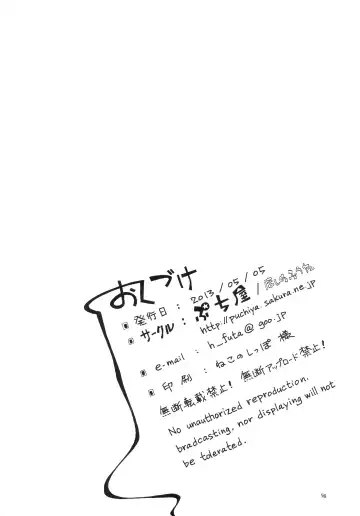 おくづけ
発行日 : 2013/05/05
サークル : ぷち屋 /
http://puchiya.sakura.ne.jp
e-mail : h_futa@goo.jp
印刷 : ねこのしっぽ 様
無断転載禁止! 無断アップロード禁止!
No unauthorized reproduction.
bradcasting, nor displaying will not
be tolerated.